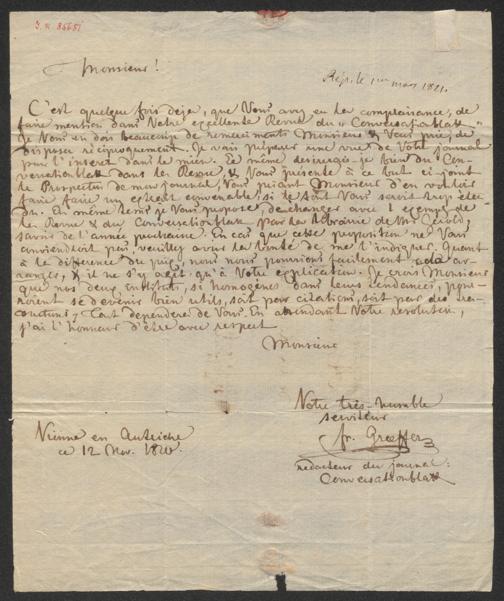 J.N. 85651
Monsieur!
Rép. le 1er mars 1821.
C'est quelque fois deja, que Vous avez eu la complaisance, de
faire mention dans Votre excellente Revue du "Conversationblatt"
Je Vous en dois beaucoup de remerciments Monsieur & Vous prie, de
disposer réciproquement. Je vais préparer une vue de Votre journal
pour l'inserer dans le mien. Le même desirerais-je bien du Con-
versationblatt dans la Revue, & Vous présente à ce but ci-joint
le Prospectus de mon journal, Vous priant Monsieur d'en vouloir
faire faire un extrait convenable, si le tout Vous serait trop éten-
du. En même tems je Vous propose, d'echanger avec 1 exempl. de
la Revue & du Conversationblatt par la librairie de Mr.
savoir de l'année prochaine. En cas que cette proposition ne Vous
conviendrait pas, veuillez avoir la bonté de me l'indiquer. Quant
à la difference du prix, nous nous pourrions facilement ar-
ranger, & il ne s'y agit qu'à Votre explication. Je crois Monsieur
que nos deux instituts, si homogènes dans leurs tendances, pour-
roient se devenir bien utils, soit par citations, soit par des re-
Tout dependera de Vous. En attendant Votre resolution,
j'ai l'honneur d'être avec respect
Monsieur
Votre très-humble
serviteur
fr. Graeffer
rédacteur du journal:
Conversationblatt
Vienne en Autriche
ce 12 Nov. 1820.